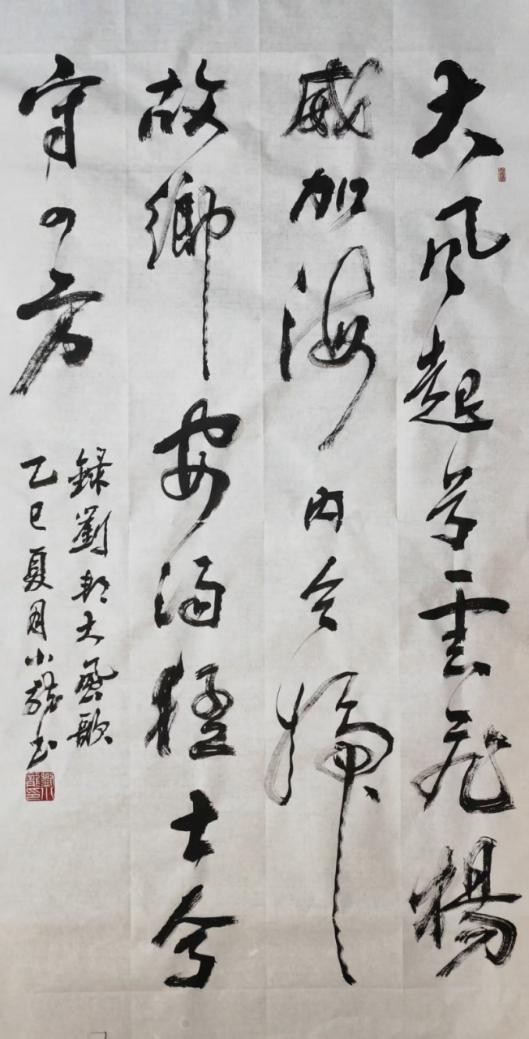 大風起兮雲飛揚
威加海內兮歸
故鄉安得猛士兮
守四方
錄劉邦大風歌
乙巳夏月小龍書